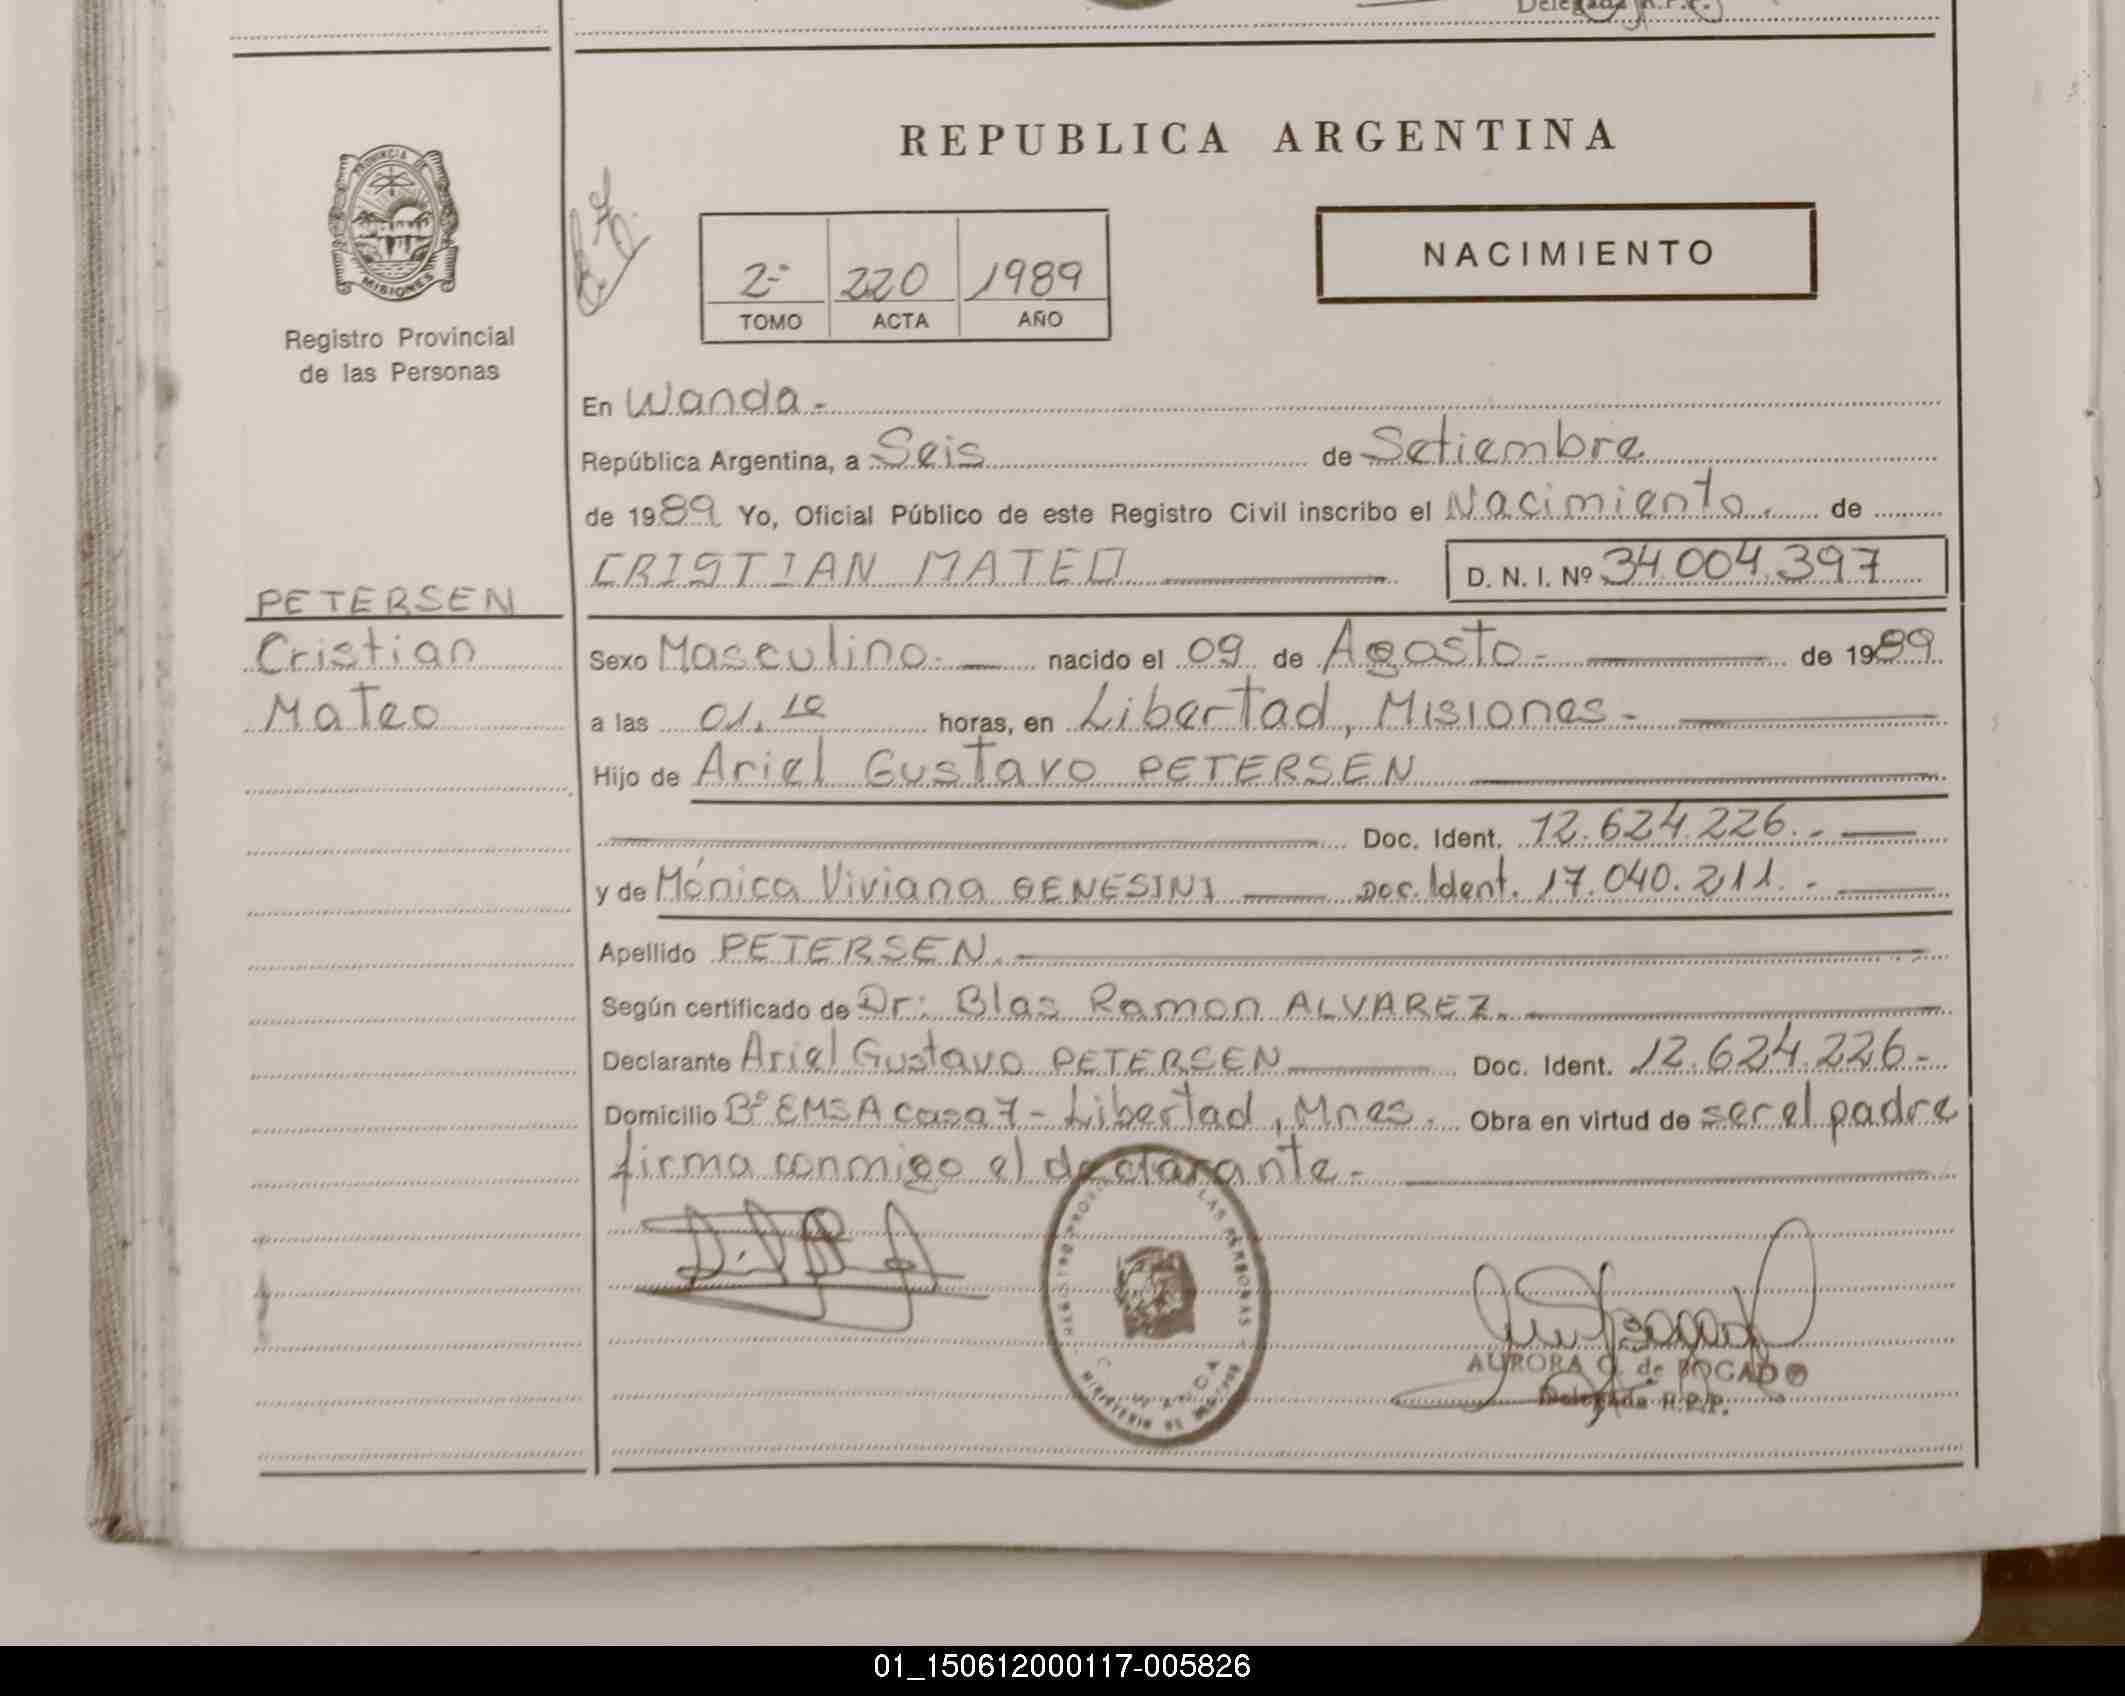 Delegada R.P.P.
REPUBLICA ARGENTINA
PROVINCIA DE
MISIONES
Registro Provincial
de las Personas
2º 220 1989
TOMO ACTA AÑO
NACIMIENTO
En Wanda.-
República Argentina, a Seis de Setiembre
de 1989 Yo, Oficial Público de este Registro Civil inscribo el Nacimiento. de
CRISTIAN MATEO D. N. I. Nº 34.004.397
PETERSEN
Cristian
Mateo
Sexo Masculino.- nacido el 09 de Agosto.- de 1989
a las 01.10 horas, en Libertad, Misiones.-
Hijo de Ariel Gustavo PETERSEN
Doc. Ident. 12.624.226.-
y de Mónica Viviana GENESINI Doc. Ident. 17.040.211.-
Apellido PETERSEN.
Según certificado de Dr: Blas Ramon ALVAREZ.
Declarante Ariel Gustavo PETERSEN Doc. Ident. 12.624.226.-
Domicilio Bº EMSA casa 7 - Libertad, Mnes. Obra en virtud de ser el padre
firma conmigo el declarante.-
REGISTRO PROVINCIAL DE LAS PERSONAS
AURORA G. de BOGADO
Delegada R.P.P.
01_150612000117-005826